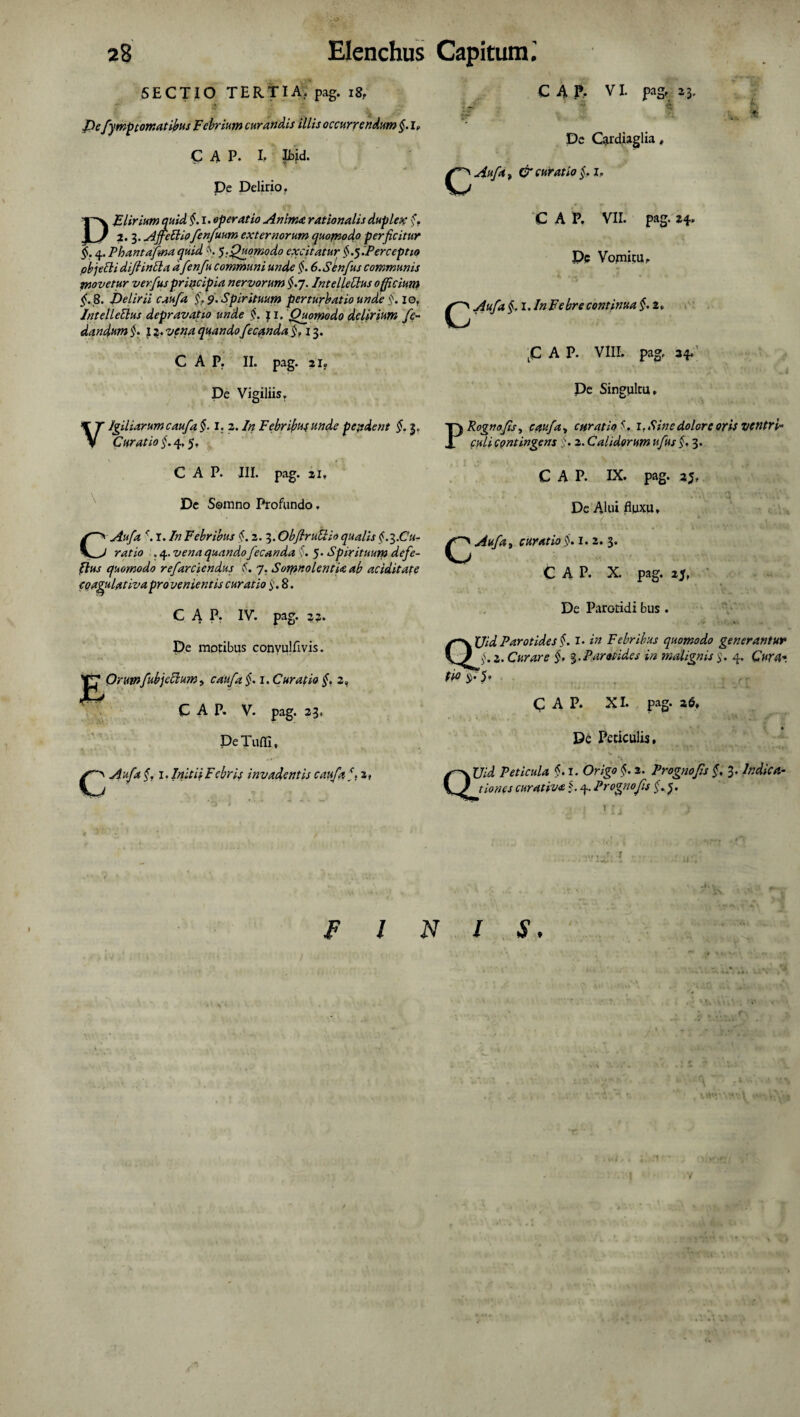 28 Elenchus Capitum.
SECTIO TERTIA. pag. 18.
De ſymptomatibus Febrium curandis illis occurrendum §. 1.
C A P. I. Ibid.
De Delirio.
DElirium quid §. 1. operatio Animæ rationalis duplex §.
2. 3. Affectio ſenſuum externorum quomodo perficitur
§. 4. Phantaſma quid §. 5. Quomodo excitatur §. 5. Perceptio
objecti diſtincta a ſenſu communi unde §. 6. Senſus communis
movetur verſus principia nervorum §. 7. Intellectus officium
§. 8. Delirii cauſa §. 9. Spirituum perturbatio unde §. 10.
Intellectus depravatio unde §. 11. Quomodo delirium ſe-
dandum §. 12. vena quando ſecanda §. 13.
C A P. II. pag. 21.
De Vigiliis.
VIgiliarum cauſa §. 1. 2. In Febribus unde pendent §. 3.
Curatio §. 4. 5.
C A P. III. pag. 21.
De Somno Profundo.
CAuſa §. 1. In Febribus §. 2. 3. Obſtructio qualis §. 3. Cu-
ratio . 4. vena quando ſecanda §. 5. Spirituum defe-
ctus quomodo reſarciendus §. 7. Somnolentiæ ab aciditate
coagulativa provenientis curatio §. 8.
C A P. IV. pag. 22.
De motibus convulſivis.
EOrum ſubjectum, cauſa §. 1. Curatio §. 2.
C A P. V. pag. 23.
De Tuſſi.
CAuſa §. 1. Initii Febris invadentis cauſa §. 2.
C A P. VI. pag. 23.
De Cardiaglia.
CAuſa, & curatio §. 1.
C A P. VII. pag. 24.
De Vomitu.
CAuſa §. 1. In Febre continua §. 2.
C A P. VIII. pag. 24.
De Singultu.
PRognoſis, cauſa, curatio §. 1. Sine dolore oris ventri-
culi contingens §. 2. Calidorum uſus §. 3.
C A P. IX. pag. 25.
De Alui fluxu.
CAuſa, curatio §. 1. 2. 3.
C A P. X. pag. 25.
De Parotidibus.
QUid Parotides §. 1. in Febribus quomodo generantur
§. 2. Curare §. 3. Parotides in malignis §. 4. Cura-
tio §. 5.
C A P. XI. pag. 26.
De Peticulis.
QUid Peticula §. 1. Origo §. 2. Prognoſis §. 3. Indica-
tiones curativæ §. 4. Prognoſis §. 5.
F I N I S.